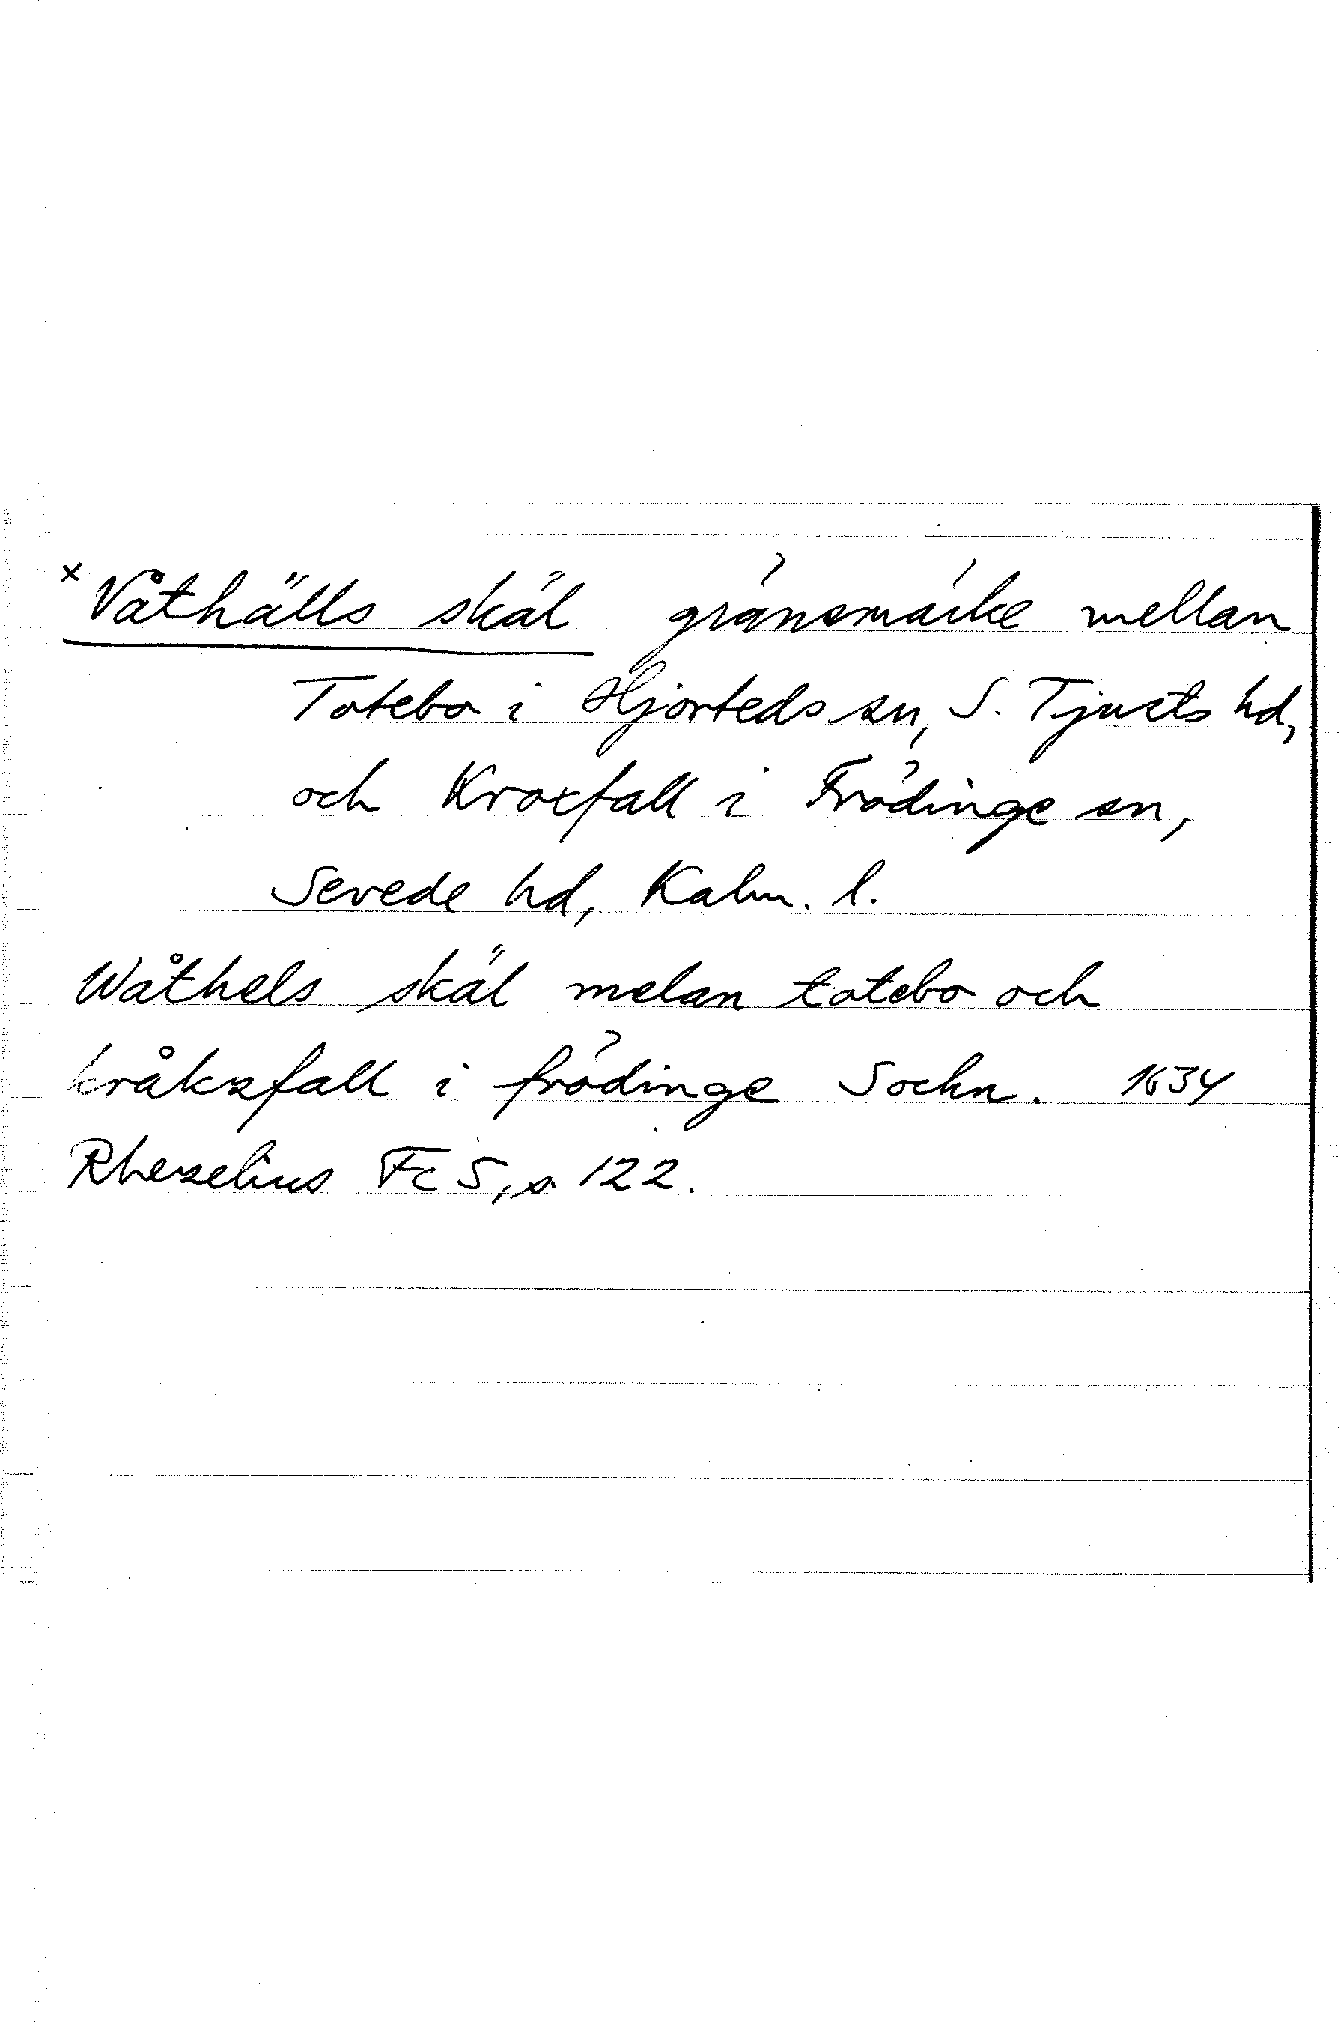 x Våthälls skäl gränsmärke mellan
Totebo i Hjorteds sn, S. Tjusts hd,
och Kroxfall i Frödinge sn,
Sevede hd, Kalm. l.
Wåthels skäl melan totebo och
kråkzfall i frödinge Sochn. 1634
Rhezelius Fc 5, s. 122.